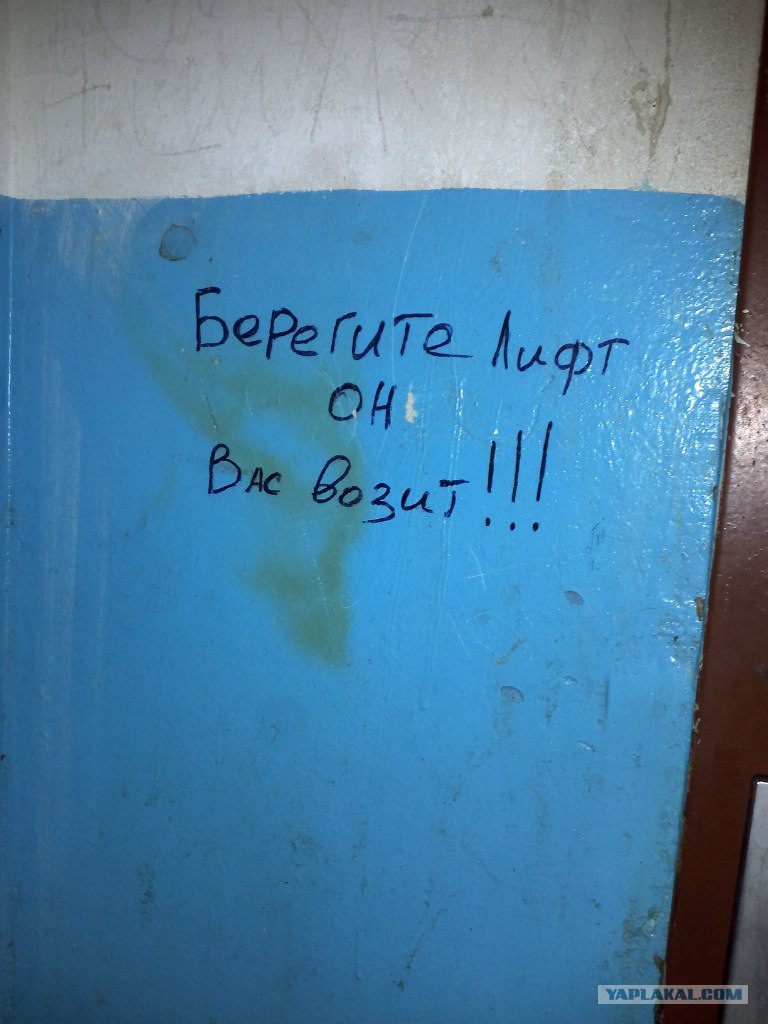 Берегите лифт
он
Вас возит!!!
YAPLAKAL.COM